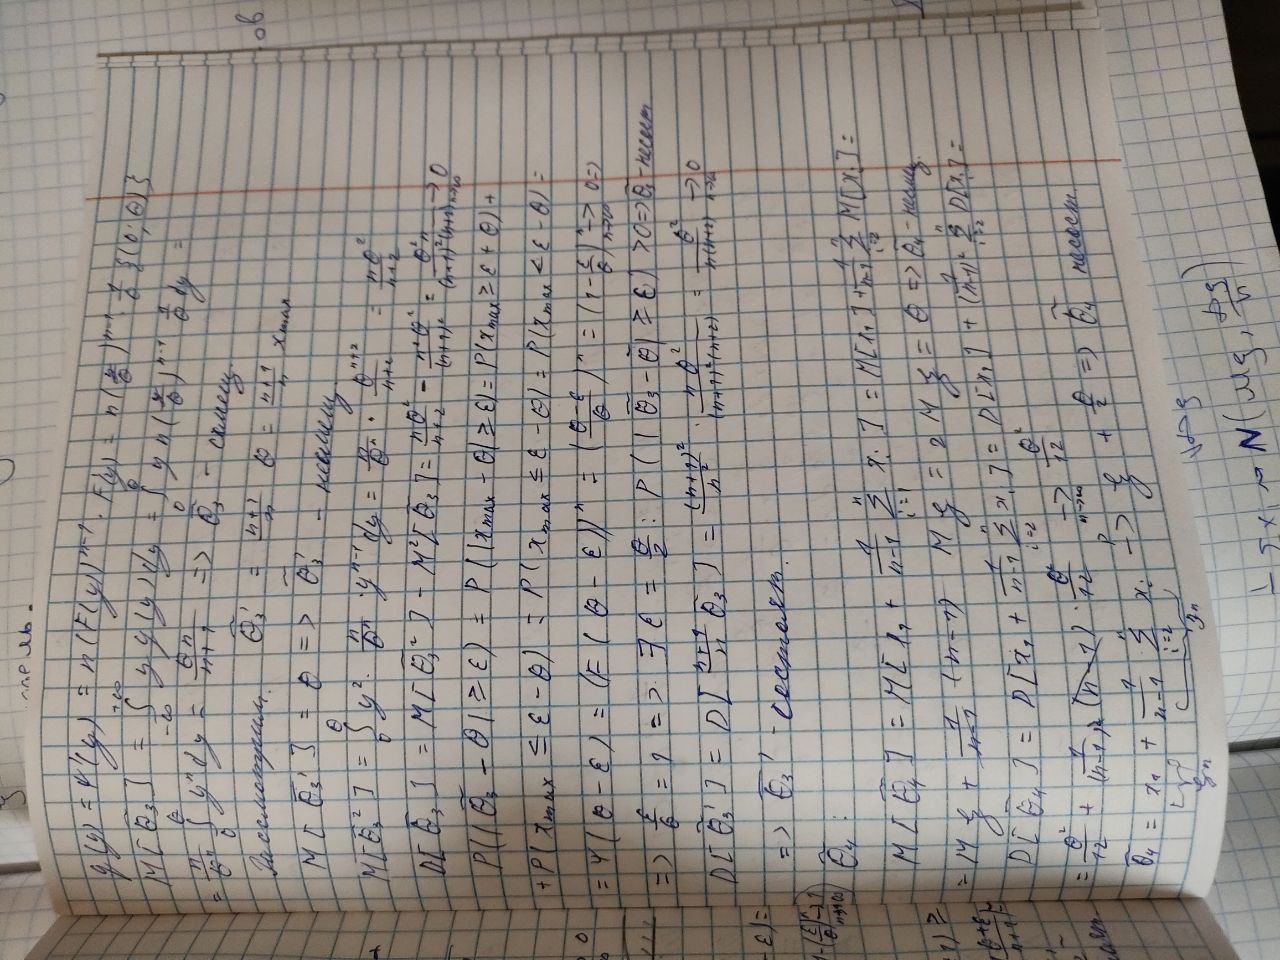 φ(y) = Ψ'(y) = n(F(y))^{n-1} · F'(y) = n(y/θ)^{n-1} · 1/θ {(0; θ)}
M[θ̃₃] = ∫_{-∞}^{+∞} y φ(y)dy = ∫_0^θ y n(y/θ)^{n-1} 1/θ dy =
= n/θ^n ∫_0^θ y^n dy = θn/(n+1) => θ̃₃ - смещ.
Рассмотрим. θ̃₃' = (n+1)/n θ̃ = (n+1)/n x_max
M[θ̃₃'] = θ => θ̃₃' - несмещ
M[θ̃₃²] = ∫_0^θ y² · n/θ^n · y^{n-1} dy = n/θ^n · θ^{n+2}/(n+2) = nθ²/(n+2)
D[θ̃₃] = M[θ̃₃²] - M²[θ̃₃] = nθ²/(n+2) - n²θ²/(n+1)² = θ²n/((n+1)²(n+2)) →_{n→∞} 0
P(|θ̃₃ - θ| ≥ ε) = P(|x_max - θ| ≥ ε) = P(x_max ≥ ε + θ) +
+ P(x_max ≤ ε - θ) = P(x_max ≤ ε - θ) = P(x_max < ε - θ) =
= Ψ(θ - ε) = (F(θ - ε))^n = ((θ-ε)/θ)^n = (1 - ε/θ)^n →_{n→∞} 0 =>
=> ε/θ = 1 => ∃ε = θ/2 : P(|θ̃₃ - θ| ≥ ε) > 0 => θ̃₃ - несост
D[θ̃₃'] = D[(n+1)/n θ̃₃] = (n+1)²/n² · nθ²/((n+1)²(n+2)) = θ²/(n(n+2)) →_{n→∞} 0
=> θ̃₃' - состоят.
θ̃₄ :
M[θ̃₄] = M[x₁ + 1/(n-1) Σ_{i=1}^n x_i] = M[x₁] + 1/(n-1) Σ_{i=2}^n M[x_i] =
= Mξ + 1/(n-1) (n-1) Mξ = 2Mξ = θ => θ̃₄ - несмещ.
D[θ̃₄] = D[x₁ + 1/(n-1) Σ_{i=2}^n x_i] = D[x₁] + 1/(n-1)² Σ_{i=2}^n D[x_i] =
= θ²/12 + 1/(n-1)² (n-1) · θ²/12 →_{n→∞} θ²/12
θ̃₄ = x₁ + 1/(n-1) Σ_{i=2}^n x_i →^P ξ + θ/2 => θ̃₄ несост.